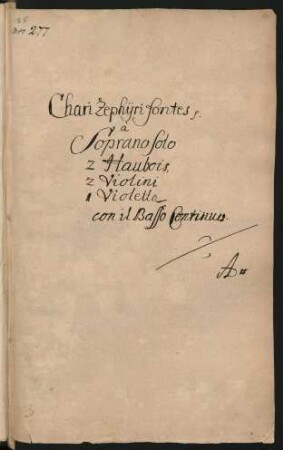 277
Chari Zephyri fontes
a
Soprano solo
2 Haubois,
2 Violini
1 Violetta
con il Basso Continuo.